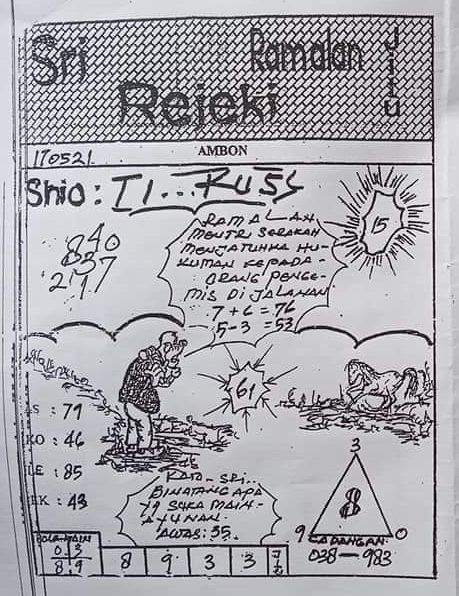 Sri
Ramalan
Jitu
Rejeki
AMBON
170521
Shio : 11...
840
837
217
15
RAMALAH
MENTRI SERAKAH
MENJATUHKA HU-
KUMAN KEPADA-
ORANG PENGE-
MIS DI JALANAN
7 + 6 = 76
5 - 3 = 53
61
AS : 71
KO : 46
LE : 85
EK : 43
BINATANG APA
YG SUKA MAIN-
AYUNAN.
AWAS: 35.
3
8
9
0
CADANGAN
038 — 983
BOLA MAIN
0 3
8 9
8 9 3 3